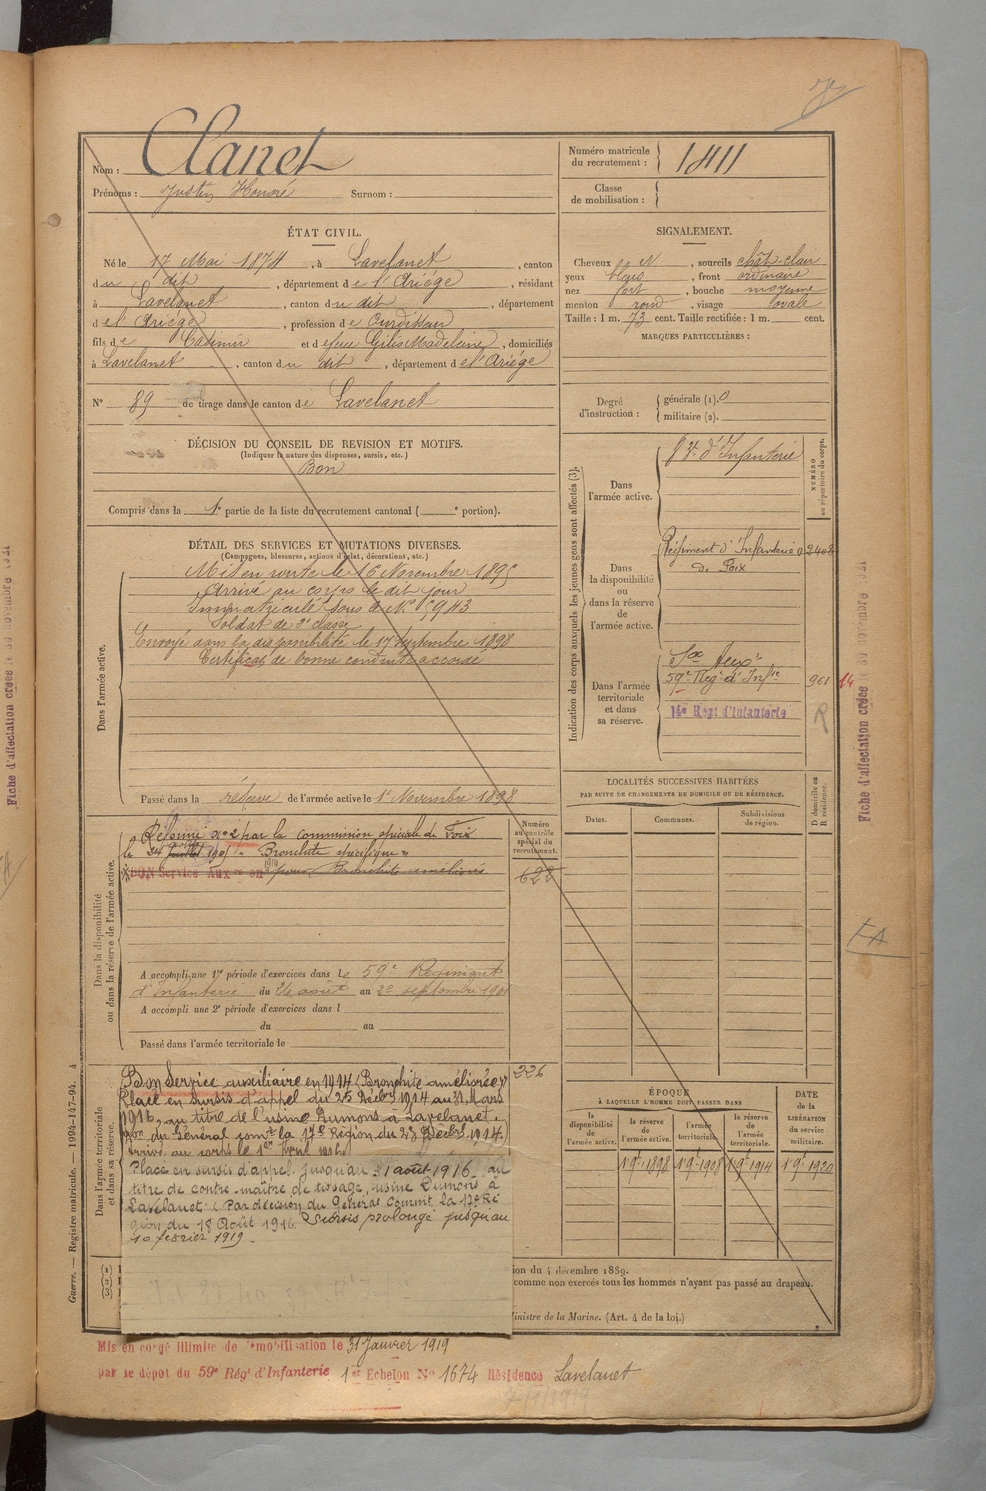 Nom : Clanet
Prénoms : Justin Honoré Surnom :
Numéro matricule du recrutement : 1411
Classe de mobilisation :
ÉTAT CIVIL.
Né le 17 Mai 1874, à Lavelanet, canton
du dit, département de l'Ariége, résidant
à Lavelanet, canton du dit, département
de l'Ariége, profession de
fils de Casimir et de feue Gilis Madeleine, domiciliés
à Lavelanet, canton du dit, département de l'Ariége
N° 89 de tirage dans le canton de Lavelanet
DÉCISION DU CONSEIL DE REVISION ET MOTIFS.
(Indiquer la nature des dispenses, sursis, etc.)
Bon
Compris dans la 1e partie de la liste du recrutement cantonal ( e portion).
SIGNALEMENT.
Cheveux N, sourcils chât-clair
yeux bleus, front ordinaire
nez fort, bouche moyenne
menton rond, visage ovale
Taille : 1 m. 73 cent. Taille rectifiée : 1 m. cent.
MARQUES PARTICULIÈRES :
Degré d'instruction : générale (1). 0
militaire (2).
DÉTAIL DES SERVICES ET MUTATIONS DIVERSES.
(Campagnes, blessures, actions d'éclat, décorations, etc.)
Dans l'armée active.
Mis en route le 16 Novembre 1895
Arrivé au corps le dit jour
Immatriculé sous le N° 5943
Soldat de 2e classe
Envoyé dans la disponibilité le 17 Septembre 1898
Certificat de bonne conduite accordé
Passé dans la réserve de l'armée active le 1r Novembre 1898
Indication des corps auxquels les jeunes gens sont affectés (3).
NUMÉRO au répertoire du corps.
Dans l'armée active.
d'Infanterie
Dans la disponibilité ou dans la réserve de l'armée active.
Régiment d'Infanterie
de Foix
Dans l'armée territoriale et dans sa réserve.
59e Rég. d'Infie 961 14
14e Régt d'Infanterie R
LOCALITÉS SUCCESSIVES HABITÉES
PAR SUITE DE CHANGEMENTS DE DOMICILE OU DE RÉSIDENCE.
Dates. Communes. Subdivisions de région. D domicile ou R résidence.
Dans la disponibilité ou dans la réserve de l'armée active.
Numéro au contrôle spécial du recrutement.
Réformé n° 2 par la commission spéciale de Foix
Bronchite spécifique
BON Service Auxre en pour Bronchite améliorée
622
A accompli une 1re période d'exercices dans le 59e Régiment
d'Infanterie du 26 août au 22 septembre 1901
A accompli une 2e période d'exercices dans l
du au
Passé dans l'armée territoriale le
Dans l'armée territoriale et dans sa réserve.
226
Bon Service auxiliaire en 1914 (Bronchite améliorée)
Placé en sursis d'appel du 25 Décbre 1914 au 31 Mars
1916, au titre de l'usine Dumons à Lavelanet.
du Général comt la 17e Région du 23 Décbre 1914.)
Placé en sursis d'appel jusqu'au 31 août 1916 au
titre de contre-maître de tissage, usine Dumons à
Lavelanet. (Par décision du Général Commt la 17e Ré
gion du 18 Août 1916 Sursis prolongé jusqu'au
10 février 1919.
ÉPOQUE
À LAQUELLE L'HOMME DOIT PASSER DANS
la disponibilité de l'armée active. la réserve de l'armée active. l'armée territoriale. la réserve de l'armée territoriale.
DATE de la LIBÉRATION du service militaire.
1 9e 1898 1 9e 1908 1 9e 1914 1 9e 1920
ion du 4 décembre 1889.
comme non exercés tous les hommes n'ayant pas passé au drapeau.
Ministre de la Marine. (Art. 4 de la loi.)
Mis en congé illimité de démobilisation le 31 Janvier 1919
par le dépôt du 59e Régt d'Infanterie 1er Echelon N° 1674 Résidence Lavelanet
Guerre. — Registre matricule. — 1994-147-94. 4
Fiche d'affectation créée le 30 novembre 1921
Fiche d'affectation créée le 30 novembre 1921